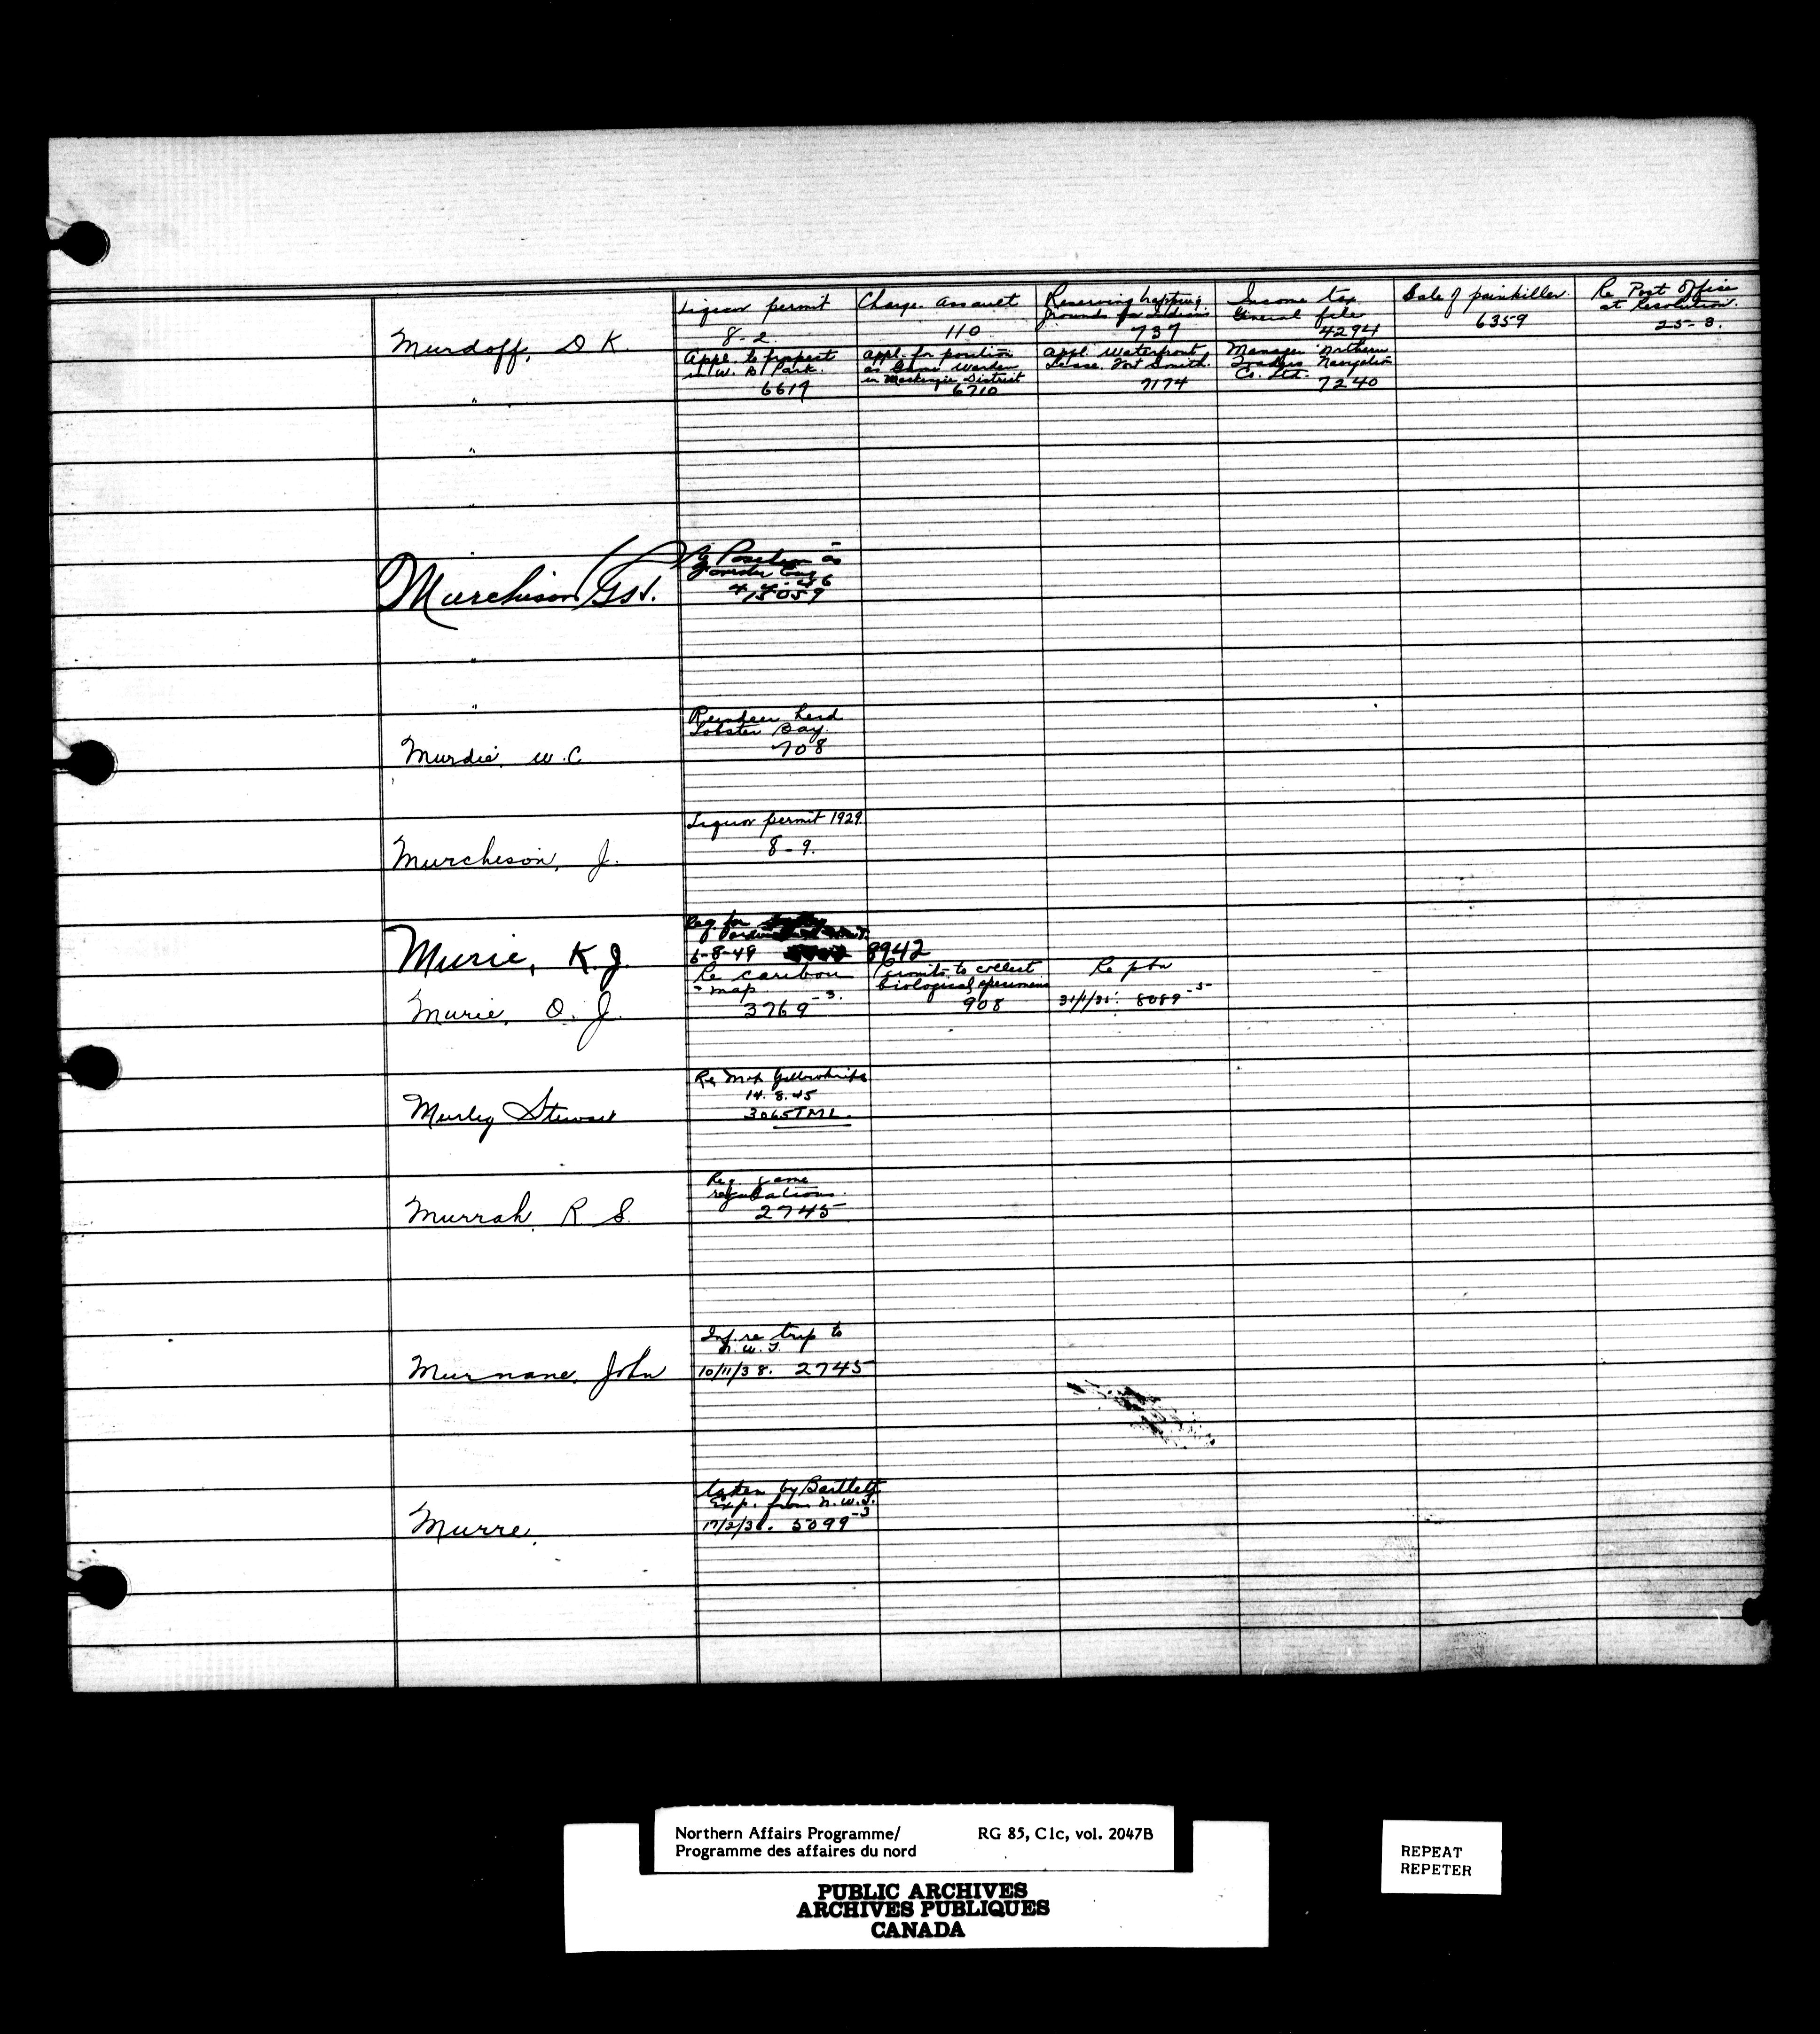 Liquor permit
8-2.
Charge Assault
110
Reserving trapping
grounds for Indians
737
Income tax
General file
4294
Sale of painkiller
6359
Re Post Office
at Resolution.
25-8.
Murdoff, D K.
Appl. to prospect
in W. B. Park.
6619
Appl. for position
as Game Warden
in Mackenzie District
6710
Appl. Waterfront
Lease. Fort Smith.
7174
Manager Northern
Traders Navigation
Co. Ltd.
7240
"
"
"
Murchison
Re Position as
"
"
Murdie, W. C.
Reindeer herd
Lobster Bay.
708
Murcheson, J.
Liquor permit 1929.
8-9.
Murie, K. J.
Req. for
6-8-49
8942
Murie, O. J.
Re caribou
map.
3769-3.
Permits to collect
biological specimens
908
Re ptn
8089-5-
Murley Stewart
Re Map Yellowknife
14.8.45
3065TML.
Murrah, R S.
Reg. game
regulations.
2745
Murnane, John
Inf. re trip to
N.W.T.
10/11/38. 2745
Murre.
taken by Bartlett
Exp. from N.W.T.
5099-3
Northern Affairs Programme/
Programme des affaires du nord
RG 85, C1c, vol. 2047B
PUBLIC ARCHIVES
ARCHIVES PUBLIQUES
CANADA
REPEAT
REPETER